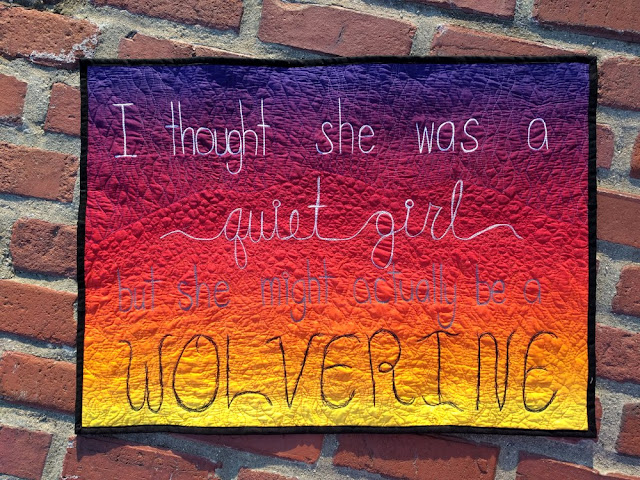 I thought she was a
quiet girl
but she might actually be a
WOLVERINE